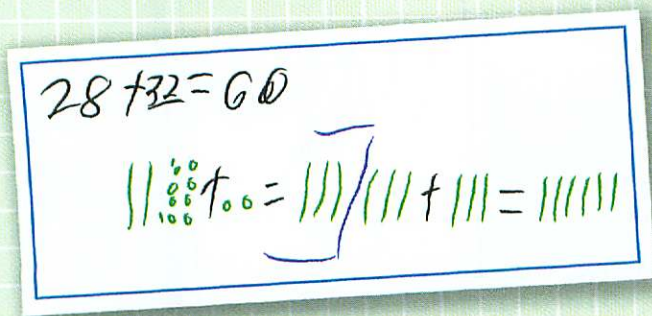 28 + 32 = 60
|| + = ||| ||| + ||| = ||||||